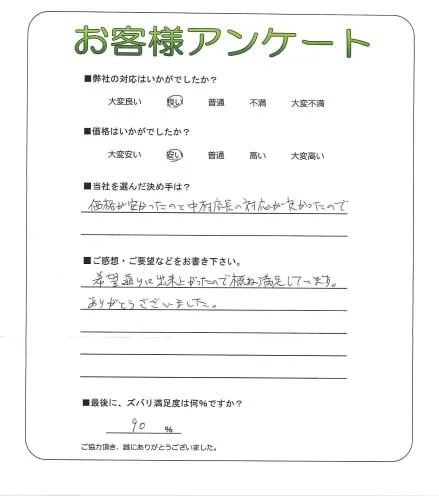 お客様アンケート
■弊社の対応はいかがでしたか?
大変良い 良い 普通 不満 大変不満
■価格はいかがでしたか?
大変安い 安い 普通 高い 大変高い
■当社を選んだ決め手は?
価格が安かったのと中村店長の対応が良かったので
■ご感想・ご要望などをお書き下さい。
希望通りに出来上がったので概ね満足しています。
ありがとうございました。
■最後に、ズバリ満足度は何%ですか?
90 %
ご協力頂き、誠にありがとうございました。